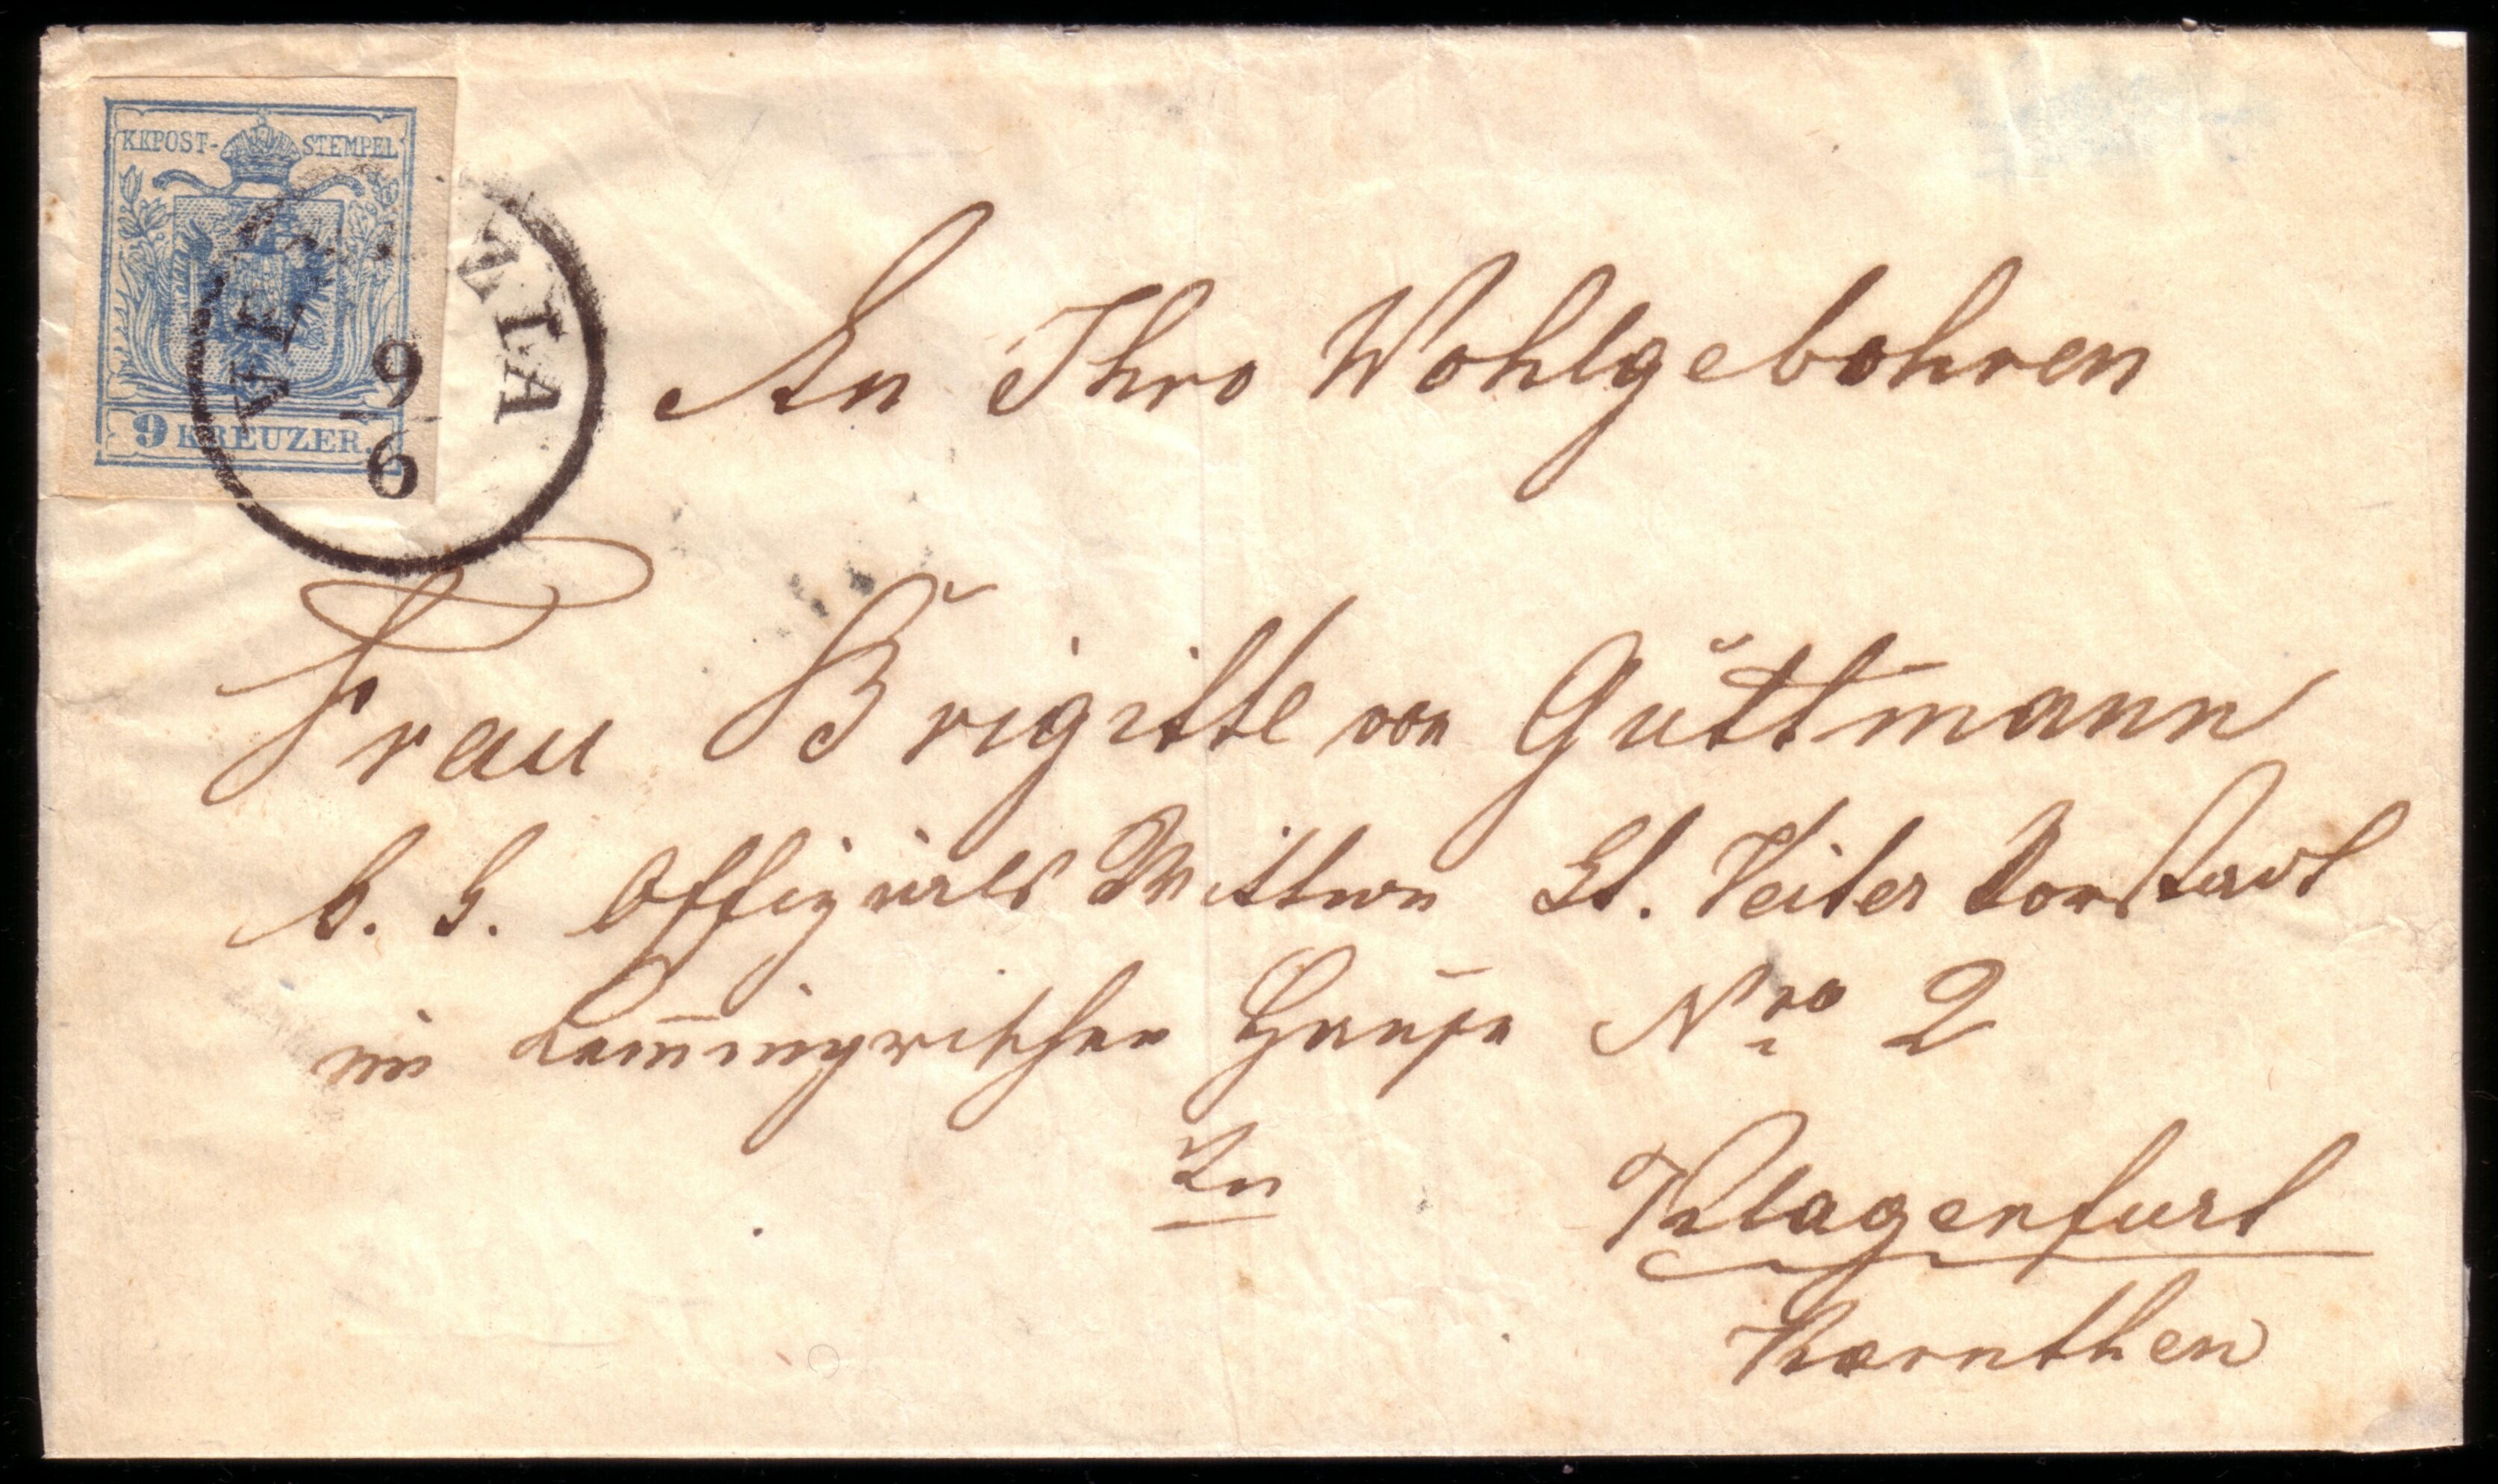 KKPOST-STEMPEL
9 KREUZER.
VENEZIA
9
6
An Ihro Wohlgebohren
Frau Brigitte von Guttmann
k. k. Offizials Wittwe St. Veiter Vorstadt
im Hause Nro 2
In
Klagenfurt
Kaernthen